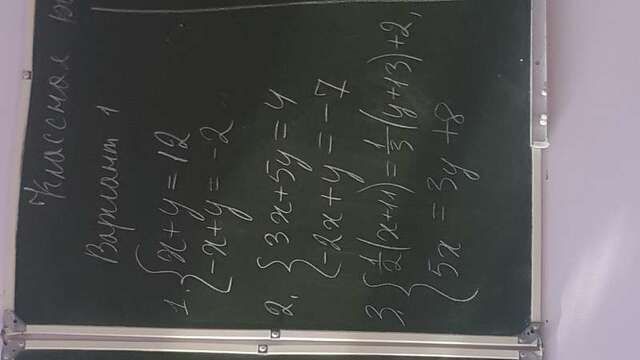 Классная
Вариант 1
1. { x + y = 12
-x + y = -2
2. { 3x + 5y = 4
-2x + y = -7
3. { 1/2(x + 11) = 1/3(y + 13) + 2,
5x = 3y + 8